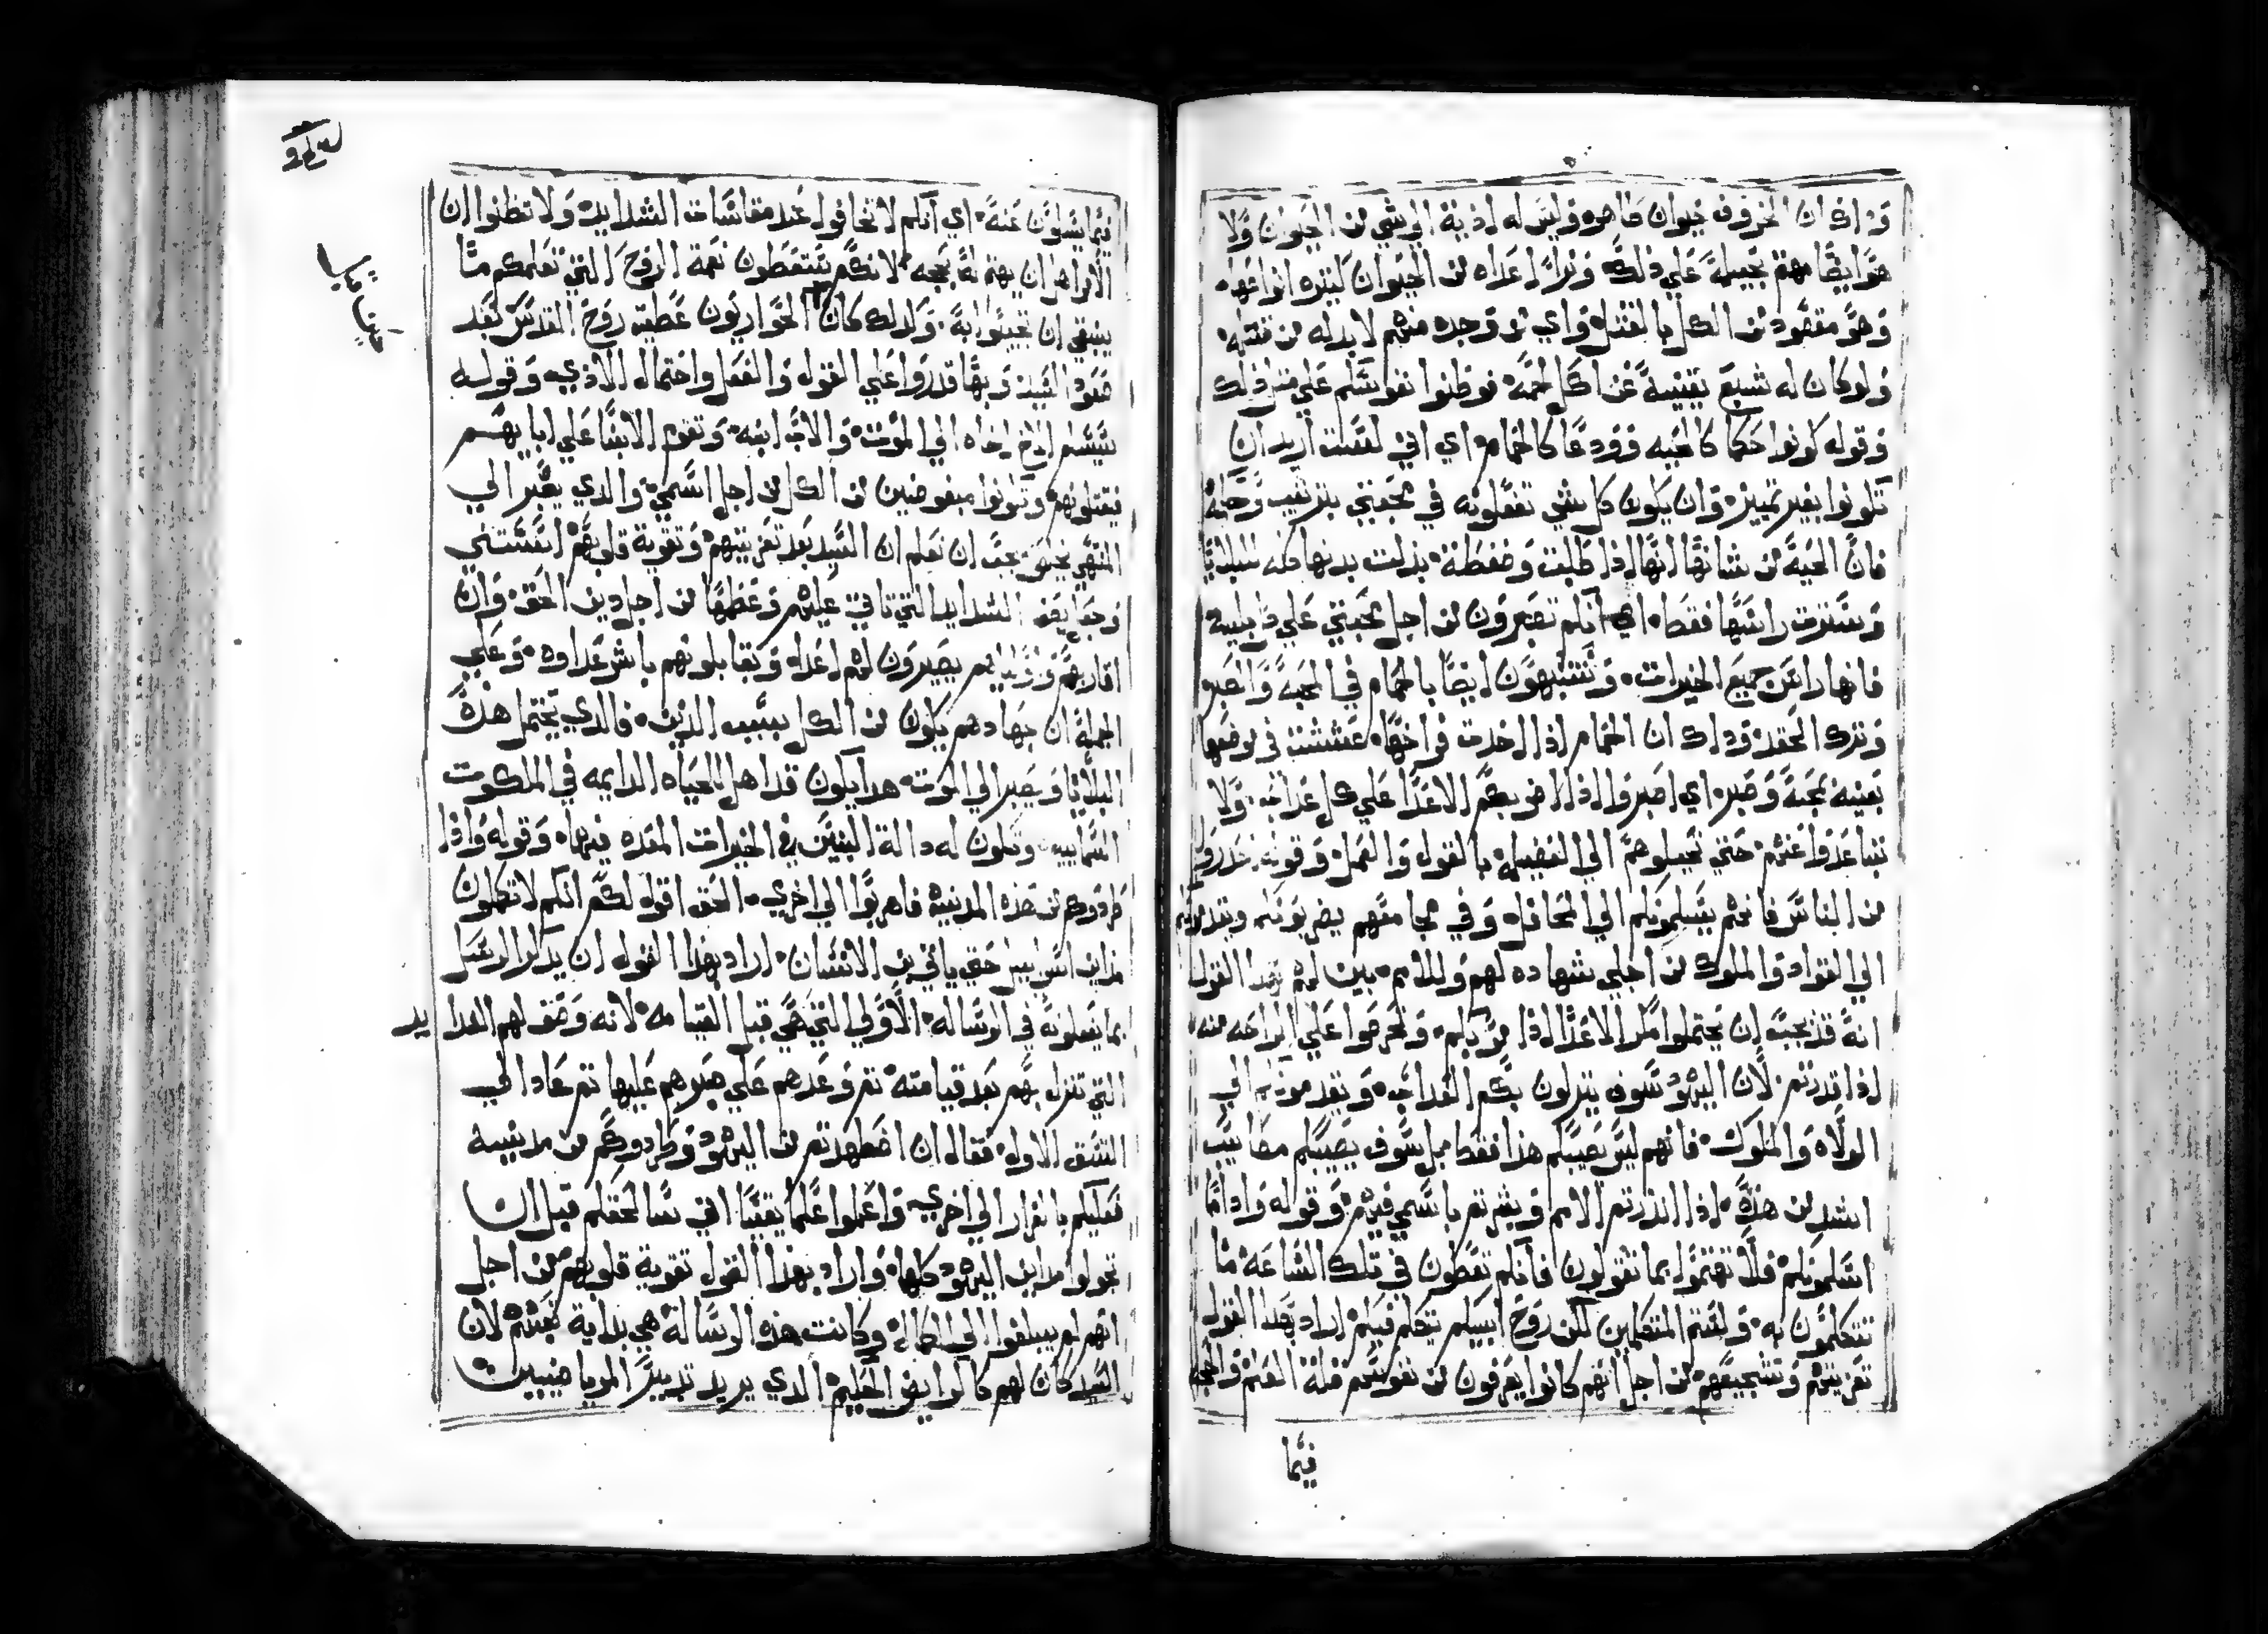 وداك ان الخروف حيوان طاهره وليس له اذية الي شي من الحيوان ولا
هو ايضا مهتم بحيله علي ذلك وتري اعداه من الحيوان كثيره انواعها
وهو مقصود من الكل بالقتل واي من وجده منهم لا بد له من قتله
ولو كان له شبع يغنيه عن اكل لحمه نوطنوا نفوسكم علي مثل ذلك
وقوله كونوا حكما كالحيه وودعا كالحمام اي اني لست اريد ان
تكونوا بغير تمييز وان يكون كل شي تفعلونه في محبتي بترتيب وحكمة
فان الحية من شانها انها اذا طلبت وضغطة بذلت بدنها كله للبلايا
وسترت راسها فقط اي انكم تصبرون من اجل محبتي علي كل بليه
فانها راس جميع الخيرات وتتشبهون ايضا بالحمام في المحبة والصبر
وترك الحقد وداك ان الحمام اذا اخدت فراخها عششت في موضعها
بعينه بمحبة وصبر اي اصبروا اذا اضر بكم الاعدا علي كل عذاب ولا
تتباعدوا عنهم حتي تميلوهم الي الفضيله بالقول والعمل وقوله احدروا
من الناس فانهم يسلمونكم الي المحافل وفي مجامعهم يضربونكم ويقدمونكم
الي القواد والملوك من اجلي شهاده لهم وللامم بين لهم بهدا القول
انه قد يجب ان تحتملوا مكر الاعدا اذا مر بكم وتحرصوا علي الراحه منه
اذا قدرتم لان اليهود سوف ينزلون بكم العداب ويقدمونكم الي
الولاه والملوك فانهم ليس يصيبكم هذا فقط بل سوف يصيبكم مصايب
اشد من هذه اذا انذرتم الامم وبشرتم باسمي فيهم وقوله واداما
اسلمونكم فلا تهتموا بما تقولون فانكم تعطون في تلك الساعه ما
تتكلمون به ولستم المتكلمين لكن روح ابيكم يتكلم فيكم اراد بهدا القول
تعزيتهم وتشجيعهم من اجل انهم كانوا يعرفون من نفوسهم قلة العلم والحجه
فيما
فيما يسلون عنه اي انكم لا تخافوا عند مقاسات الشدايد ولا تظنوا ان
الامر اهل ان يهتم له بحجه لانكم ستعطون نعمة الروح التي تعلمكم ما
ينبغي ان تجيبوا به ولدلك كان الحواريون عطية روح القدس بعد
صعود السيد وبها قدروا علي القول والفعل واحتمال الادي وقوله
سيسلم الاخ اخاه الي الموت والاب ابنه وتقوم الابنا علي ابايهم
فيقتلونهم وتكونوا مبغوضين من الكل من اجل اسمي والدي يصبر الي
المنتهي يخلص يجب ان نعلم ان السيد بعد تعزيتهم وتقوية قلوبهم استثني
وجعل يصف الشدايد التي تاتي عليهم وعظمها من اجل دين الحق وان
اقاربهم يصيرون لهم اعداء ويقابلونهم باشر عداوه وعلي
الجملة ان جهادهم يكون من الكل بسبب الدين فالدي يحتمل هذه
البلايا ويصبر الي الموت هدا يكون قد اهل للحياه الدايمه في الملكوت
السماييه وتكون له دالة البنين في الخيرات المعده فيها وقوله واذا
طردوكم من هذه المدينة فاهربوا الي اخري الحق اقول لكم انكم لا تكملون
مداين اسراييل حتي ياتي ابن الانسان اراد بهدا القول ان يدكر الرسل
بما يفعلونه في الرساله الاولي التي هي قبل القيامه لانه وصف لهم الشدايد
التي تنزل بهم بعد قيامته ثم وعدهم علي صبرهم عليها ثم عاد الي
النسق الاول فقال ان اضطهدتم من اليهود وطردوكم من مدينة
فعليكم بالفرار الي اخري واعلموا علما يقينا اني سالحقكم قبل ان
تجولوا مداين اليهود كلها واراد بهذا القول تقوية قلوبهم من اجل
انهم لم يبلغوا الي الكمال وكانت هذه الرسالة هي بداية بعثهم لان
السيد كان لهم كالرايض الحكيم الدي يريد تدبير المرتاضيين